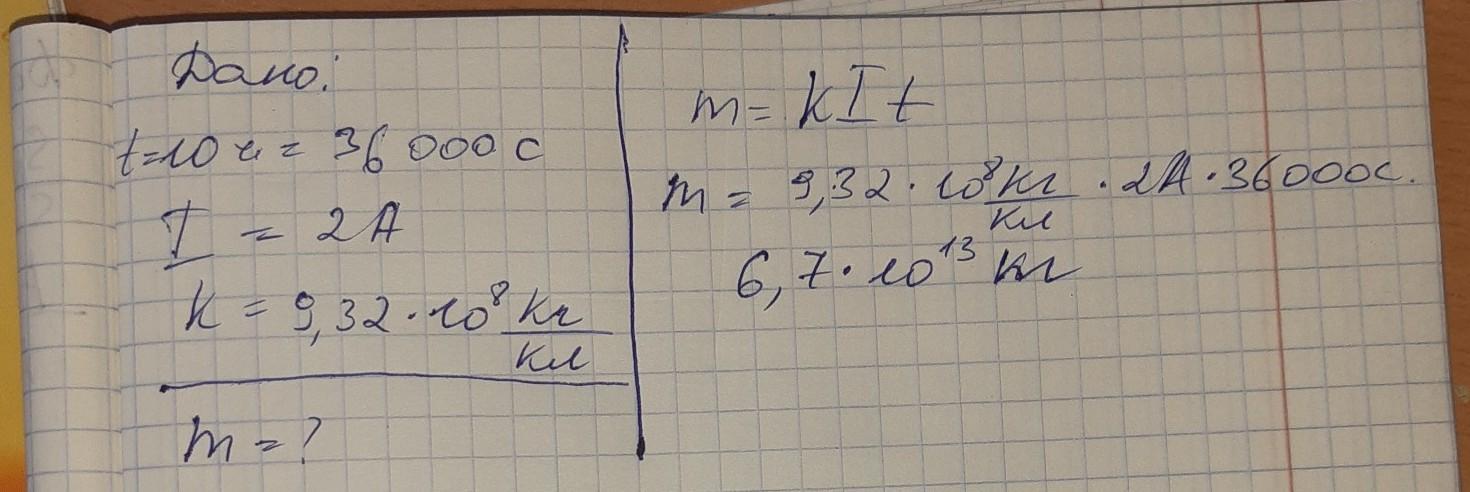 Дано:
t=10 ч = 36 000 с
I = 2А
k = 9,32 · 10⁸ кг/кл
m = ?
m = kIt
m = 9,32 · 10⁸ кг/кл · 2А · 36000с.
6,7 · 10¹³ кг